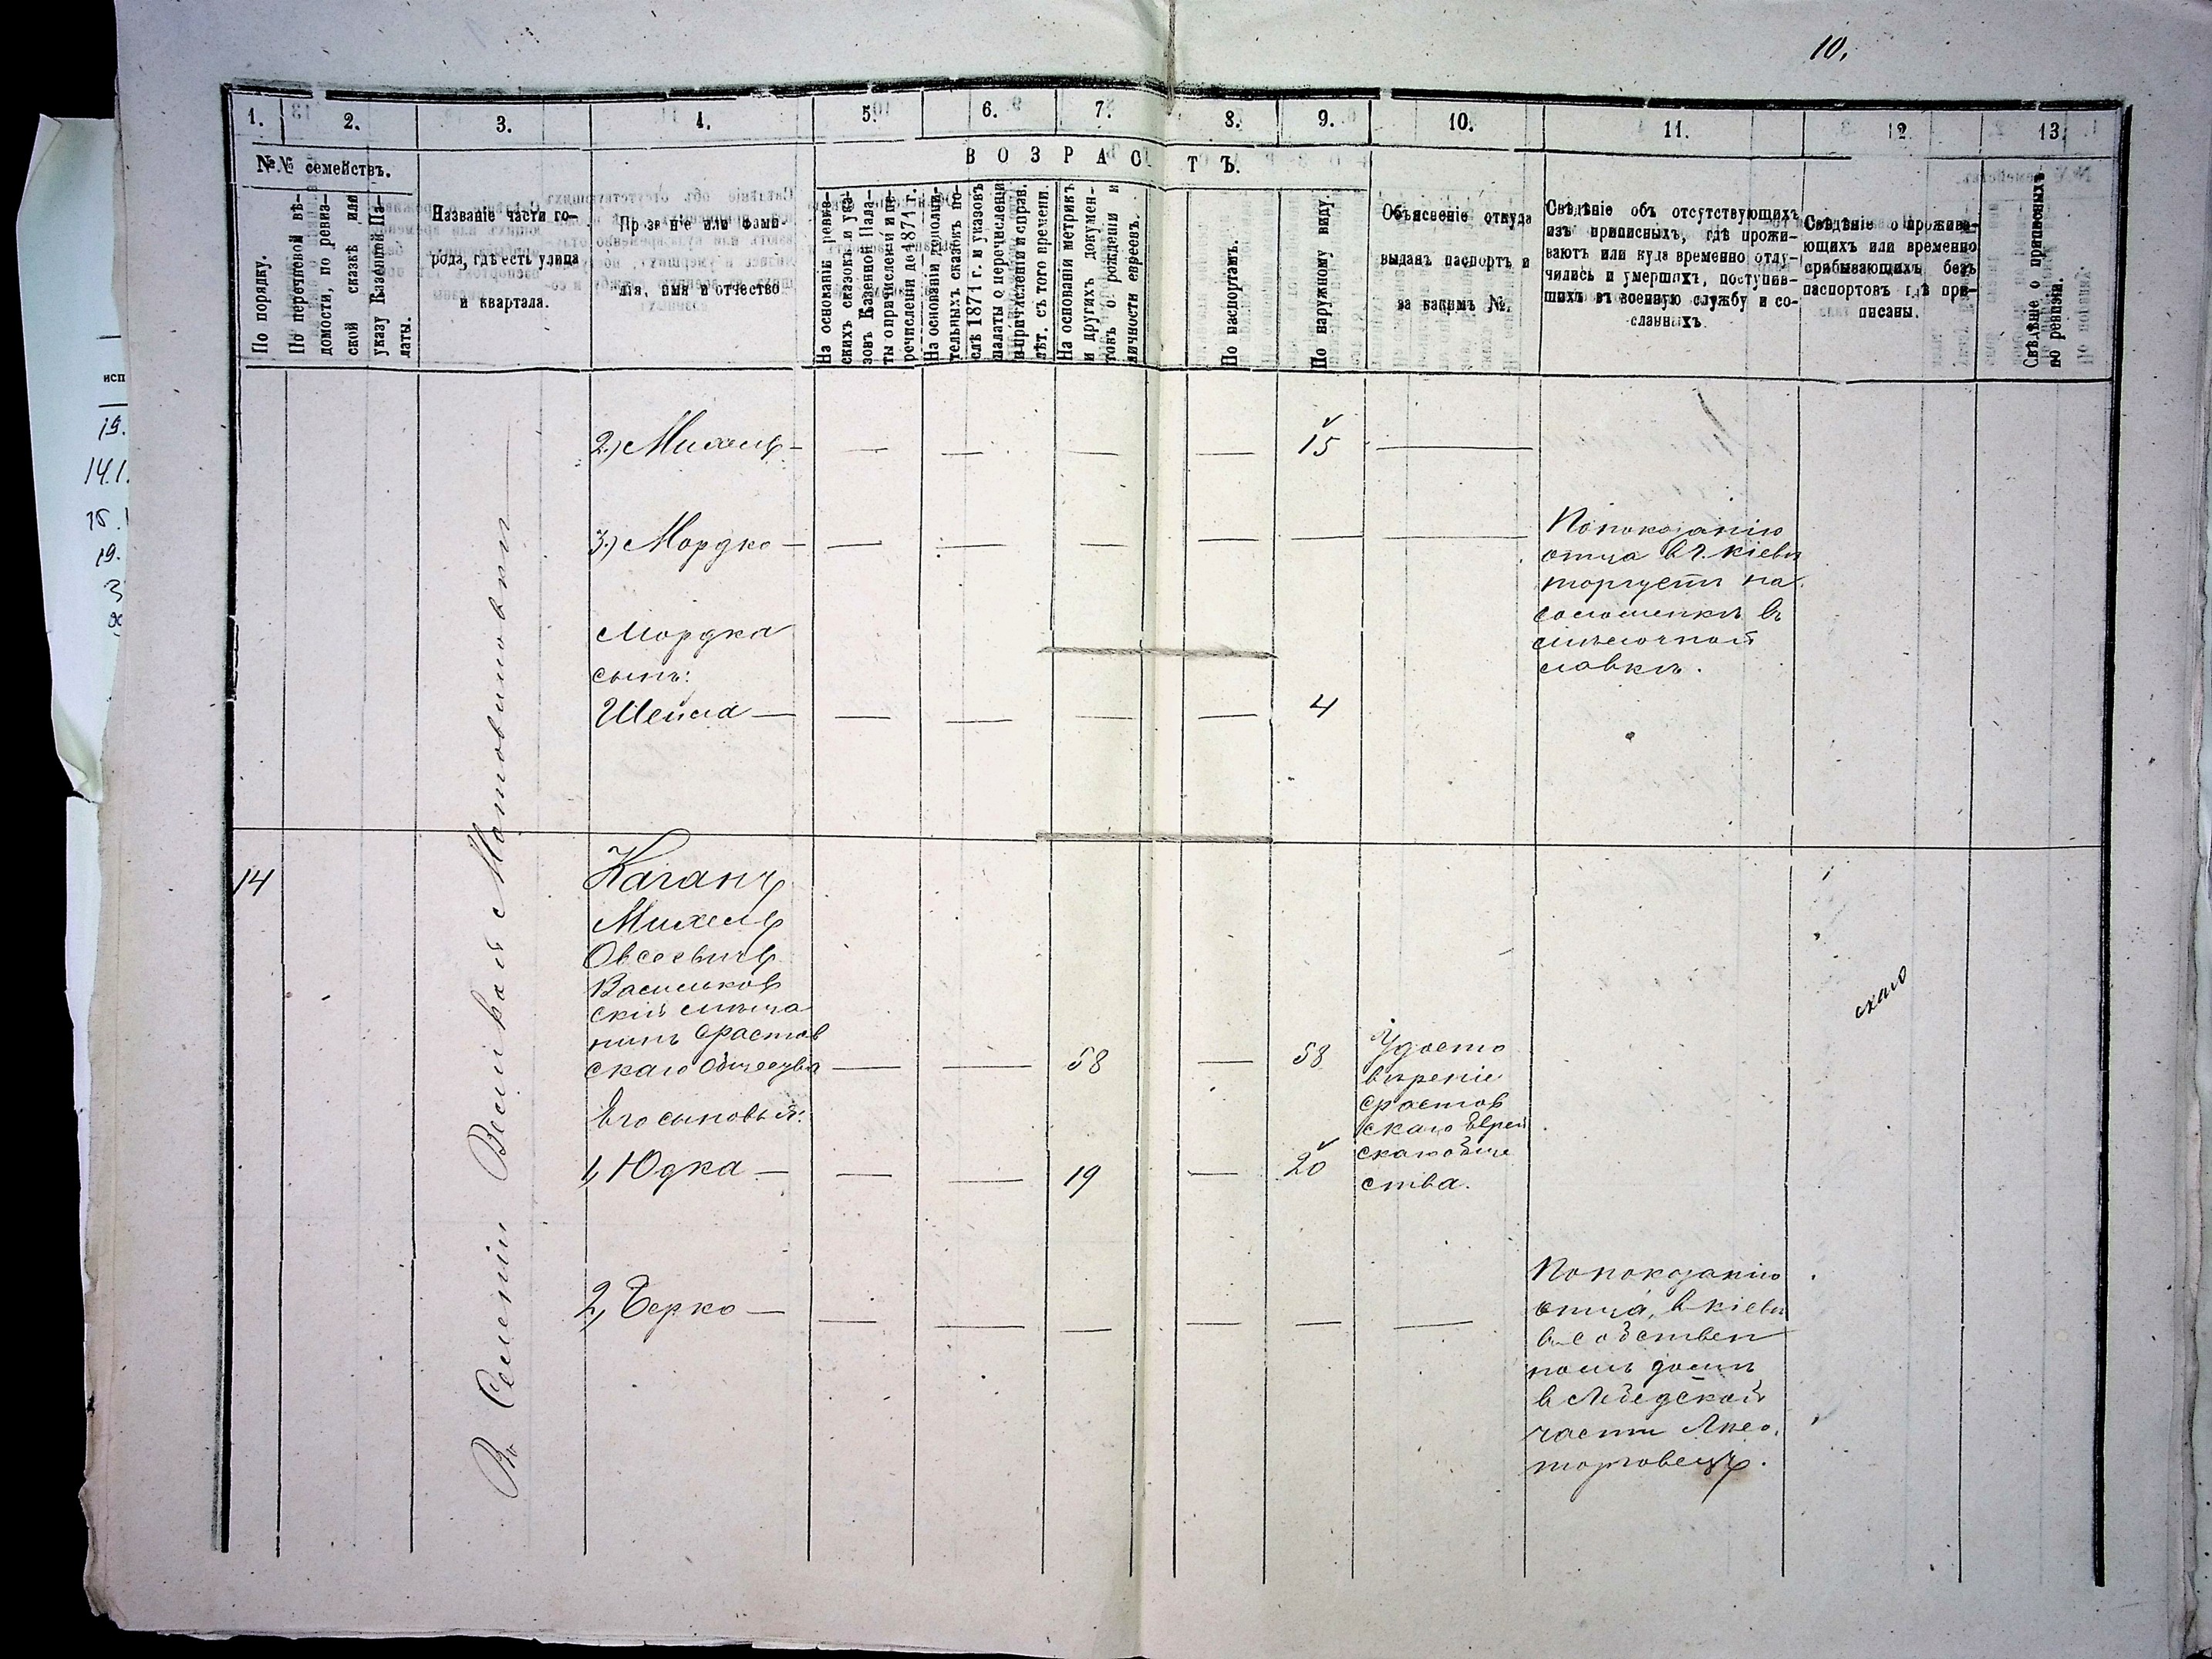 10.
1. 2. 3. 4. 5. 6. 7. 8. 9. 10. 11. 12 13.
№№ семействъ.
В О З Р А С Т Ъ.
По порядку.
По перечневой вѣ-
домости, по ревиз-
ской сказкѣ или
указу Казенной Па-
латы.
Названіе части го-
рода, гдѣ есть улица
и квартала.
Прозваніе или фами-
лія, имя и отчество
На основаніи ревиз-
скихъ сказокъ и ука-
зовъ Казенной Пала-
ты о причисленіи и пе-
речисленіи до 1871 г.
На основаніи дополни-
тельныхъ сказокъ по-
слѣ 1871 г. и указовъ
палаты о перечисленіи
и причисленіи и справ.
лѣт. съ того времени.
На основаніи метрикъ
и другихъ докумен-
товъ о рожденіи и
личности евреевъ.
По паспортамъ.
По наружному виду.
Объясненіе откуда
выданъ паспортъ и
за какимъ №.
Свѣдѣніе объ отсутствующихъ
изъ приписныхъ, гдѣ прожи-
ваютъ или куда временно отлу-
чились и умершихъ, поступив-
шихъ въ военную службу и со-
сланныхъ
Свѣдѣніе о прожива-
ющихъ или временно
прибывающихъ безъ
паспортовъ гдѣ при-
писаны.
Свѣдѣніе о приписныхъ
по ревизіи.
Въ Селеніи Великая Мотовиловки
2.) Михель — — — — — 15 —
3.) Мордко — — — — — — —
Попоказанію
отца в г. Кіевѣ
торгуетъ на
соломенкѣ въ
мѣлочной
лавкѣ.
Мордка
сынъ:
Шейма — — — — — 4
14
Каганъ
Михель
Овсеевичъ
Васильков
скій мѣща
нинъ Фастов
скаго Общества — — 58 — 58
Удосто
вѣреніе
Фастов
скаго Еврей
скаго обще
ства.
Его сыновья:
1, Юдка — — — 19 — 20
2, Берко — — — — — — —
Попоказанію
отца, в Кіевѣ
в собствен
номъ домѣ
в Лебедской
части
торговецъ.
скаго
исп
19.
14.1.
19.
3